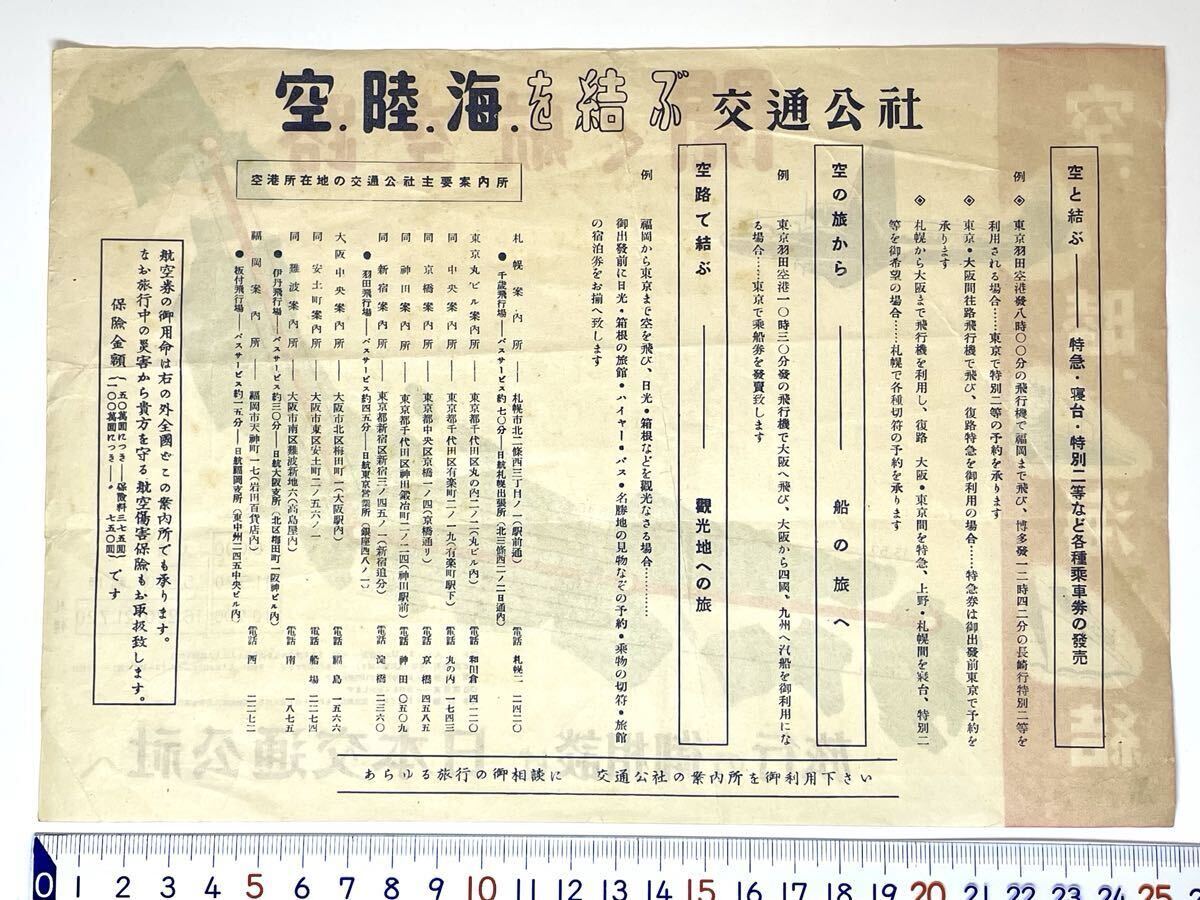 空.陸.海.を結ぶ 交通公社
空と結ぶ――特急・寝台・特別二等など各種乗車券の発売
例 ◈ 東京羽田空港發八時〇〇分の飛行機で福岡まで飛び、博多發一二時四二分の長崎行特別二等を
利用される場合……東京で特別二等の予約を承ります
◈ 東京・大阪間往路飛行機で飛び、復路特急を御利用の場合……特急券は御出發前東京で予約を
承ります
◈ 札幌から大阪まで飛行機を利用し、復路 大阪・東京間を特急、上野・札幌間を寝台、特別二
等を御希望の場合……札幌で各種切符の予約を承ります
空の旅から――船の旅へ
例 東京羽田空港一〇時三〇分發の飛行機で大阪へ飛び、大阪から四國、九州へ汽船を御利用にな
る場合……東京で乗船券を發賣致します
空路で結ぶ――觀光地への旅
例 福岡から東京まで空を飛び、日光・箱根などを觀光なさる場合…………
御出發前に日光・箱根の旅館・ハイヤー・バス・名勝地の見物などの予約・乗物の切符・旅館
の宿泊券をお揃へ致します
空港所在地の交通公社主要案内所
札幌案内所――札幌市北二條西三丁目ノ一(駅前通) 電話 札幌二 二四二〇
● 千歳飛行場――バスサービス約七〇分――日航札幌出張所(北三條西二ノ二日通内)
東京丸ビル案内所――東京都千代田区丸の内二ノ二(丸ビル内) 電話 和田倉 四一二〇
同 中央案内所――東京都千代田区有楽町二ノ一九(有楽町駅下) 電話 丸の内 一七四三
同 京橋案内所――東京都中央区京橋一ノ四(京橋通り) 電話 京橋 四五八五
同 神田案内所――東京都千代田区神田鍛冶町二ノ二四(神田駅前) 電話 神田 〇五〇九
同 新宿案内所――東京都新宿区新宿三ノ四五ノ一(新宿追分) 電話 淀橋 二三六〇
● 羽田飛行場――バスサービス約四五分――日航東京営業所(銀座西八ノ二)
大阪中央案内所――大阪市北区梅田町一(大阪駅内) 電話 福島 一五六六
同 安土町案内所――大阪市東区安土町二ノ五六ノ一 電話 船場 二二七四
同 難波案内所――大阪市南区難波新地六(高島屋内) 電話 南 一八七五
● 伊丹飛行場――バスサービス約三〇分――日航大阪支所(北区梅田町一阪神ビル内)
福岡案内所――福岡市天神町一七(岩田百貨店内) 電話 西 二二七二
● 板付飛行場――バスサービス約一五分――日航福岡支所(東中州二四五中央ビル内)
航空券の御用命は右の外全國どこの案内所でも承ります。
なお旅行中の災害から貴方を守る航空傷害保險もお取扱致します。
保險金額(五〇萬圓につき――保險料三七五圓
一〇〇萬圓につき――〃 七五〇圓)です
あらゆる旅行の御相談に 交通公社の案内所を御利用下さい
0 1 2 3 4 5 6 7 8 9 10 11 12 13 14 15 16 17 18 19 20 21 22 23 24 25